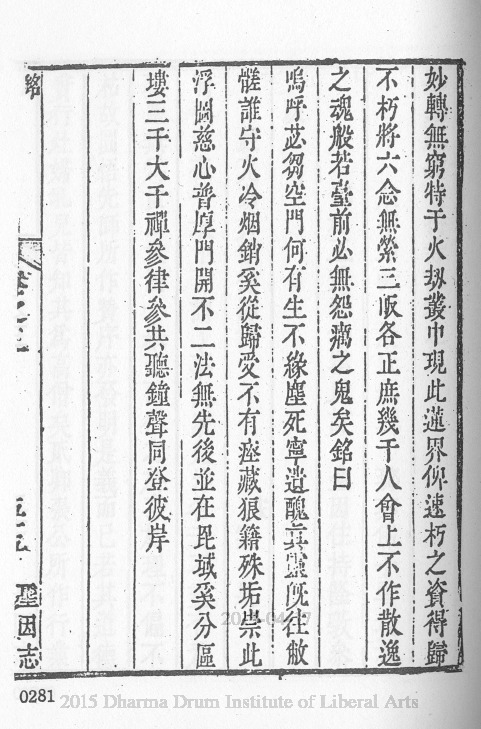 妙轉無窮特于火刼叢中現此蓮界俾速朽之資得歸
不朽將六念無縈三皈各正庶幾千人會上不作散逸
之魂般若臺前必無怨癘之鬼矣銘曰
嗚呼苾芻空門何有生不緣塵死寧遺醜真靈旣往敝
骸誰守火冷烟銷奚從歸受不有瘞藏狼籍殊垢崇此
浮圖慈心普厚門開不二法無先後並在毘域奚分區
塿三千大千禪參律參共聽鐘聲同登彼岸
銘
卷之三
五十五
聖因志
0281
2015 Dharma Drum Institute of Liberal Arts